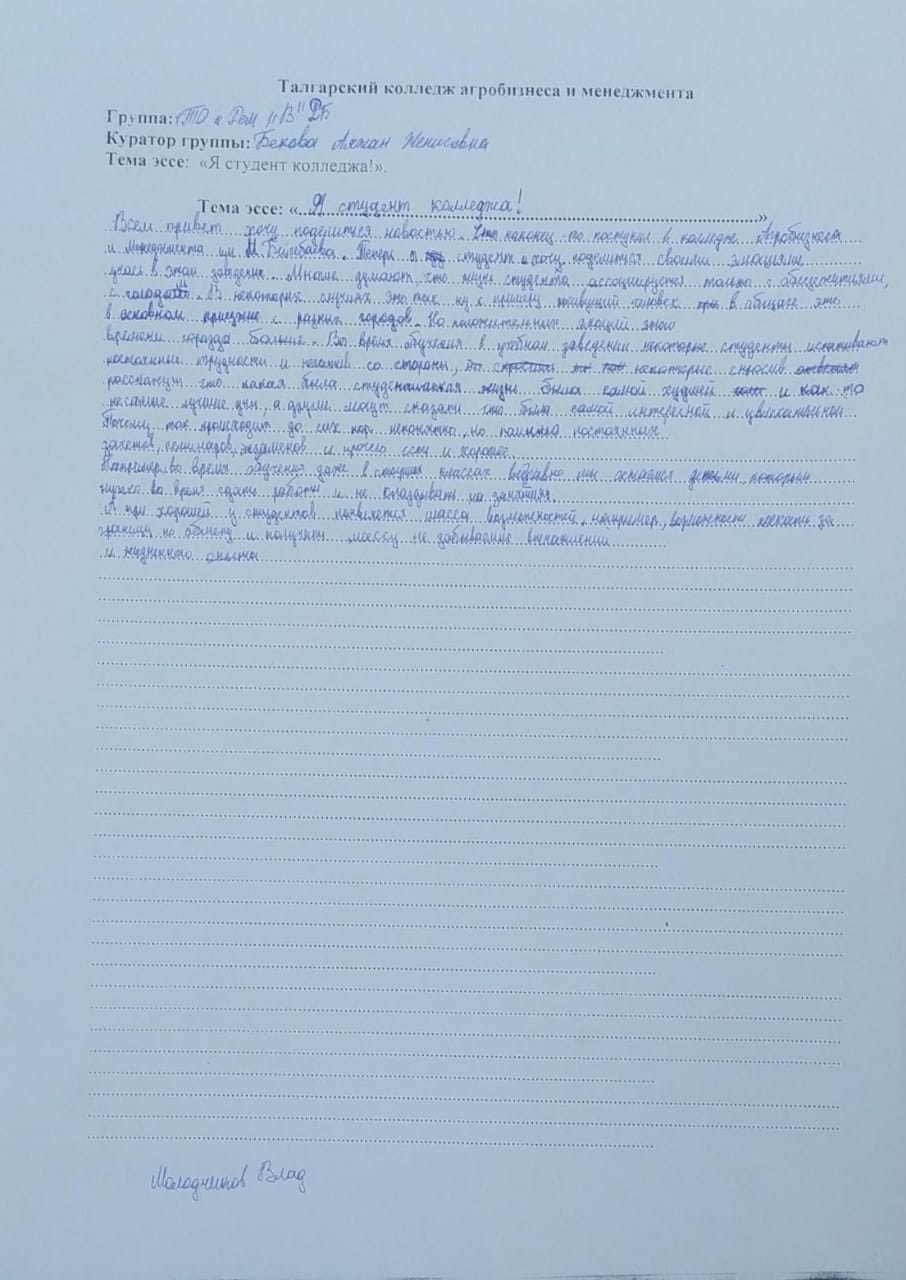 Талгарский колледж агробизнеса и менеджмента
Группа: ТО и Рем "В" РБ
Куратор группы: Бекова Алжан Женисовна
Тема эссе: «Я студент колледжа!».
Тема эссе: «Я студент колледжа!»
Всем привет хочу поделиться новостью. наконец-то поступил в колледж Агробизнеса
и Менеджмента им. М. Бейсебаева. Теперь я студент и хочу поделиться своими эмоциями
учась в этом заведение. Многие думают, что жизнь студента ассоциируется только с общежитиями,
с голодом. В некоторых случаях это так ну к примеру живущий человек в общаге это
в основном приезжие с разных городов. Но положительных эмоций этого
времени гораздо больше. Во время обучения в учебном заведении некоторые студенты испытывают
постоянные трудности и негатив со стороны, некоторые спросив
расскажут что какая была студенческая жизнь была самой худшей и как-то
не самые лучшие дни, а другие могут сказать что была самой интересной и увлекательной
Почему так происходит до сих пор непонятно, но помимо постоянных
зачетов, семинаров, экзаменов и прочего есть и хорошее
Например во время обучения даже в старших классах мы остаемся детьми которым
нужно во время сдать работы и не опаздывать на занятия.
А при хорошей у студентов появляется масса возможностей, например, возможность поехать за
границу по обмену и получить массу не забываемые впечатлений
и жизненного опыта
Молодчинов Влад